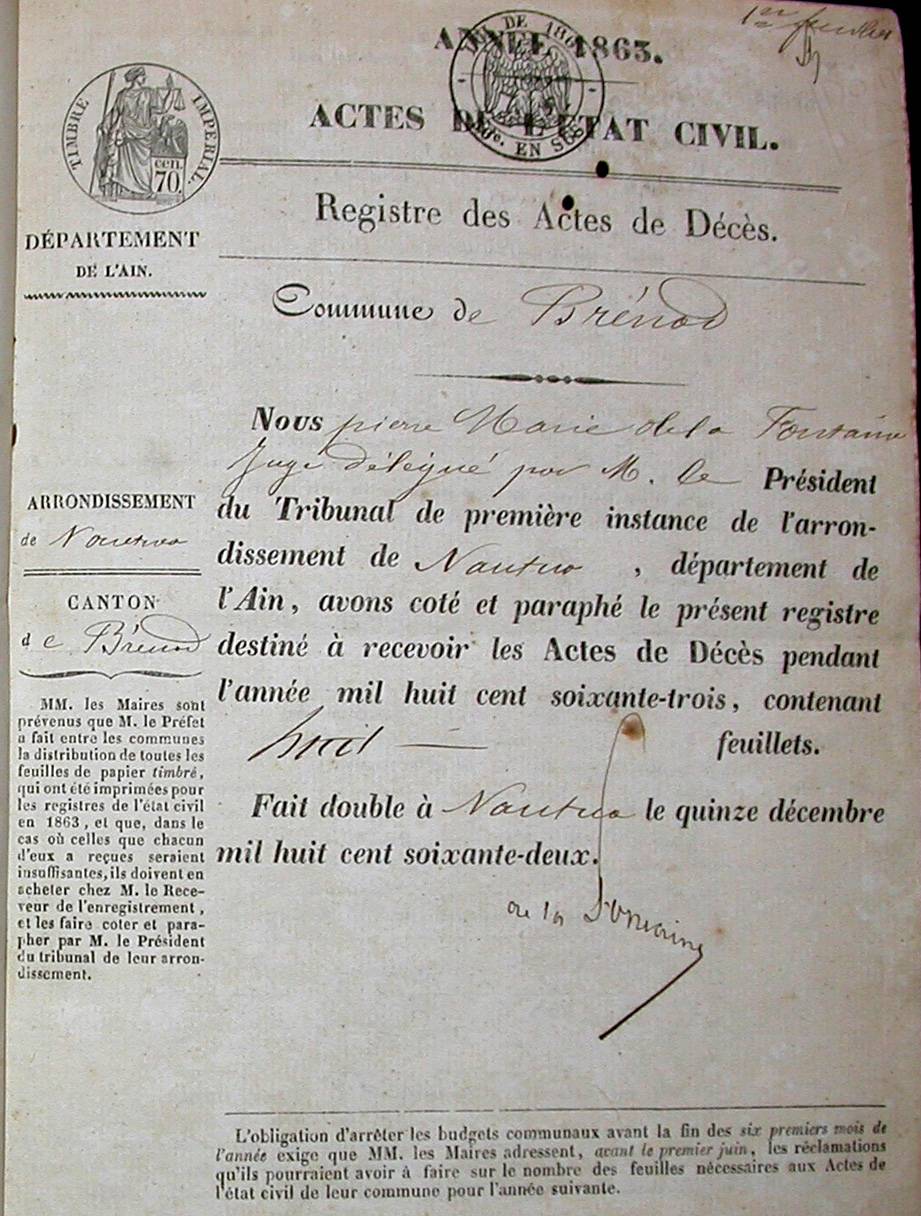 1er feuillet
ANNÉE 1863.
LOI DE 186
EN SUS
TIMBRE IMPÉRIAL.
cen.
70.
ACTES DE L'ÉTAT CIVIL.
Registre des Actes de Décès.
DÉPARTEMENT
DE L'AIN.
Commune de Brénod
ARRONDISSEMENT
de Nantua
CANTON
de Brénod
MM. les Maires sont
prévenus que M. le Préfet
a fait entre les communes
la distribution de toutes les
feuilles de papier timbré,
qui ont été imprimées pour
les registres de l'état civil
en 1863, et que, dans le
cas où celles que chacun
d'eux a reçues seraient
insuffisantes, ils doivent en
acheter chez M. le Rece-
veur de l'enregistrement,
et les faire coter et para-
pher par M. le Président
du tribunal de leur arron-
dissement.
Nous pierre Marie de la Fontaine
Juge délégué par M. le Président
du Tribunal de première instance de l'arron-
dissement de Nantua, département de
l'Ain, avons coté et paraphé le présent registre
destiné à recevoir les Actes de Décès pendant
l'année mil huit cent soixante-trois, contenant
huit — feuillets.
Fait double à Nantua le quinze décembre
mil huit cent soixante-deux.
de la Fontaine
L'obligation d'arrêter les budgets communaux avant la fin des six premiers mois de
l'année exige que MM. les Maires adressent, avant le premier juin, les réclamations
qu'ils pourraient avoir à faire sur le nombre des feuilles nécessaires aux Actes de
l'état civil de leur commune pour l'année suivante.